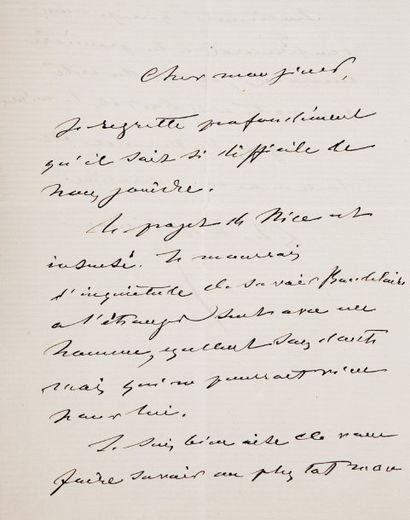 Cher monsieur,
Je regrette profondément
qu'il soit si difficile de
nous joindre.
Le projet de Nice est
insensé. Je mourrais
d'inquiétude de savoir Baudelaire
à l'étranger, seul avec un
homme, excellent sans doute
mais qui ne pourrait rien
pour lui.
Je suis bien aise de vous
faire savoir au plus tôt mon